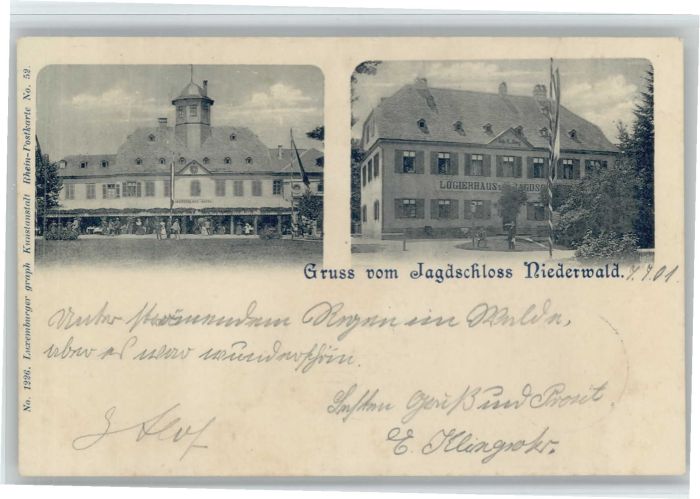 No. 1226. Luxemburger graph Kunstanstalt Rhein-Postkarte No. 52.
LOGIERHAUS JAGDSC
Gruss vom Jagdschloss Niederwald. 7.7.01.
Unter strömendem Regen im Walde,
aber es war wunderschön.
Besten Gruß und Prosit
E. Klingsohr.